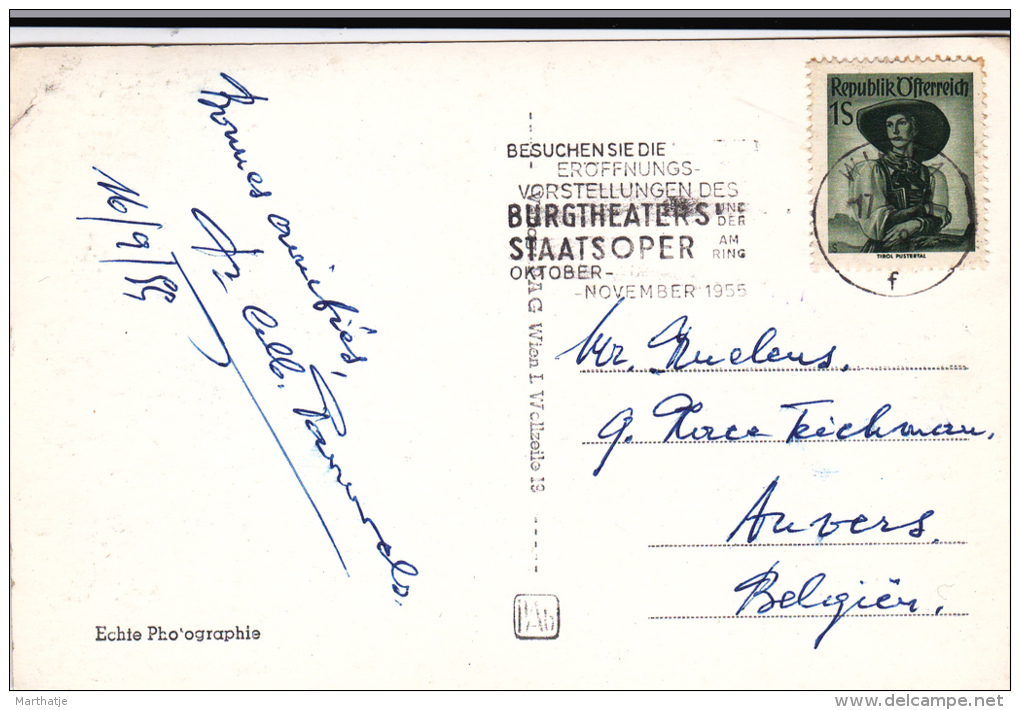 Bonnes amitiés,
16/9/55
Echte Pho'ographie
BESUCHEN SIE DIE
ERÖFFNUNGS-
VORSTELLUNGEN DES
BURGTHEATERS UND DER
STAATSOPER AM RING
OKTOBER-
-NOVEMBER 1955
AG Wien I. Wollzeile 19
Republik Österreich
1S
TIROL PUSTERTAL
17
f
Mr. Nuelens.
9. Place Teichman.
Anvers.
Belgiën.
Marthatje
delcampe.net